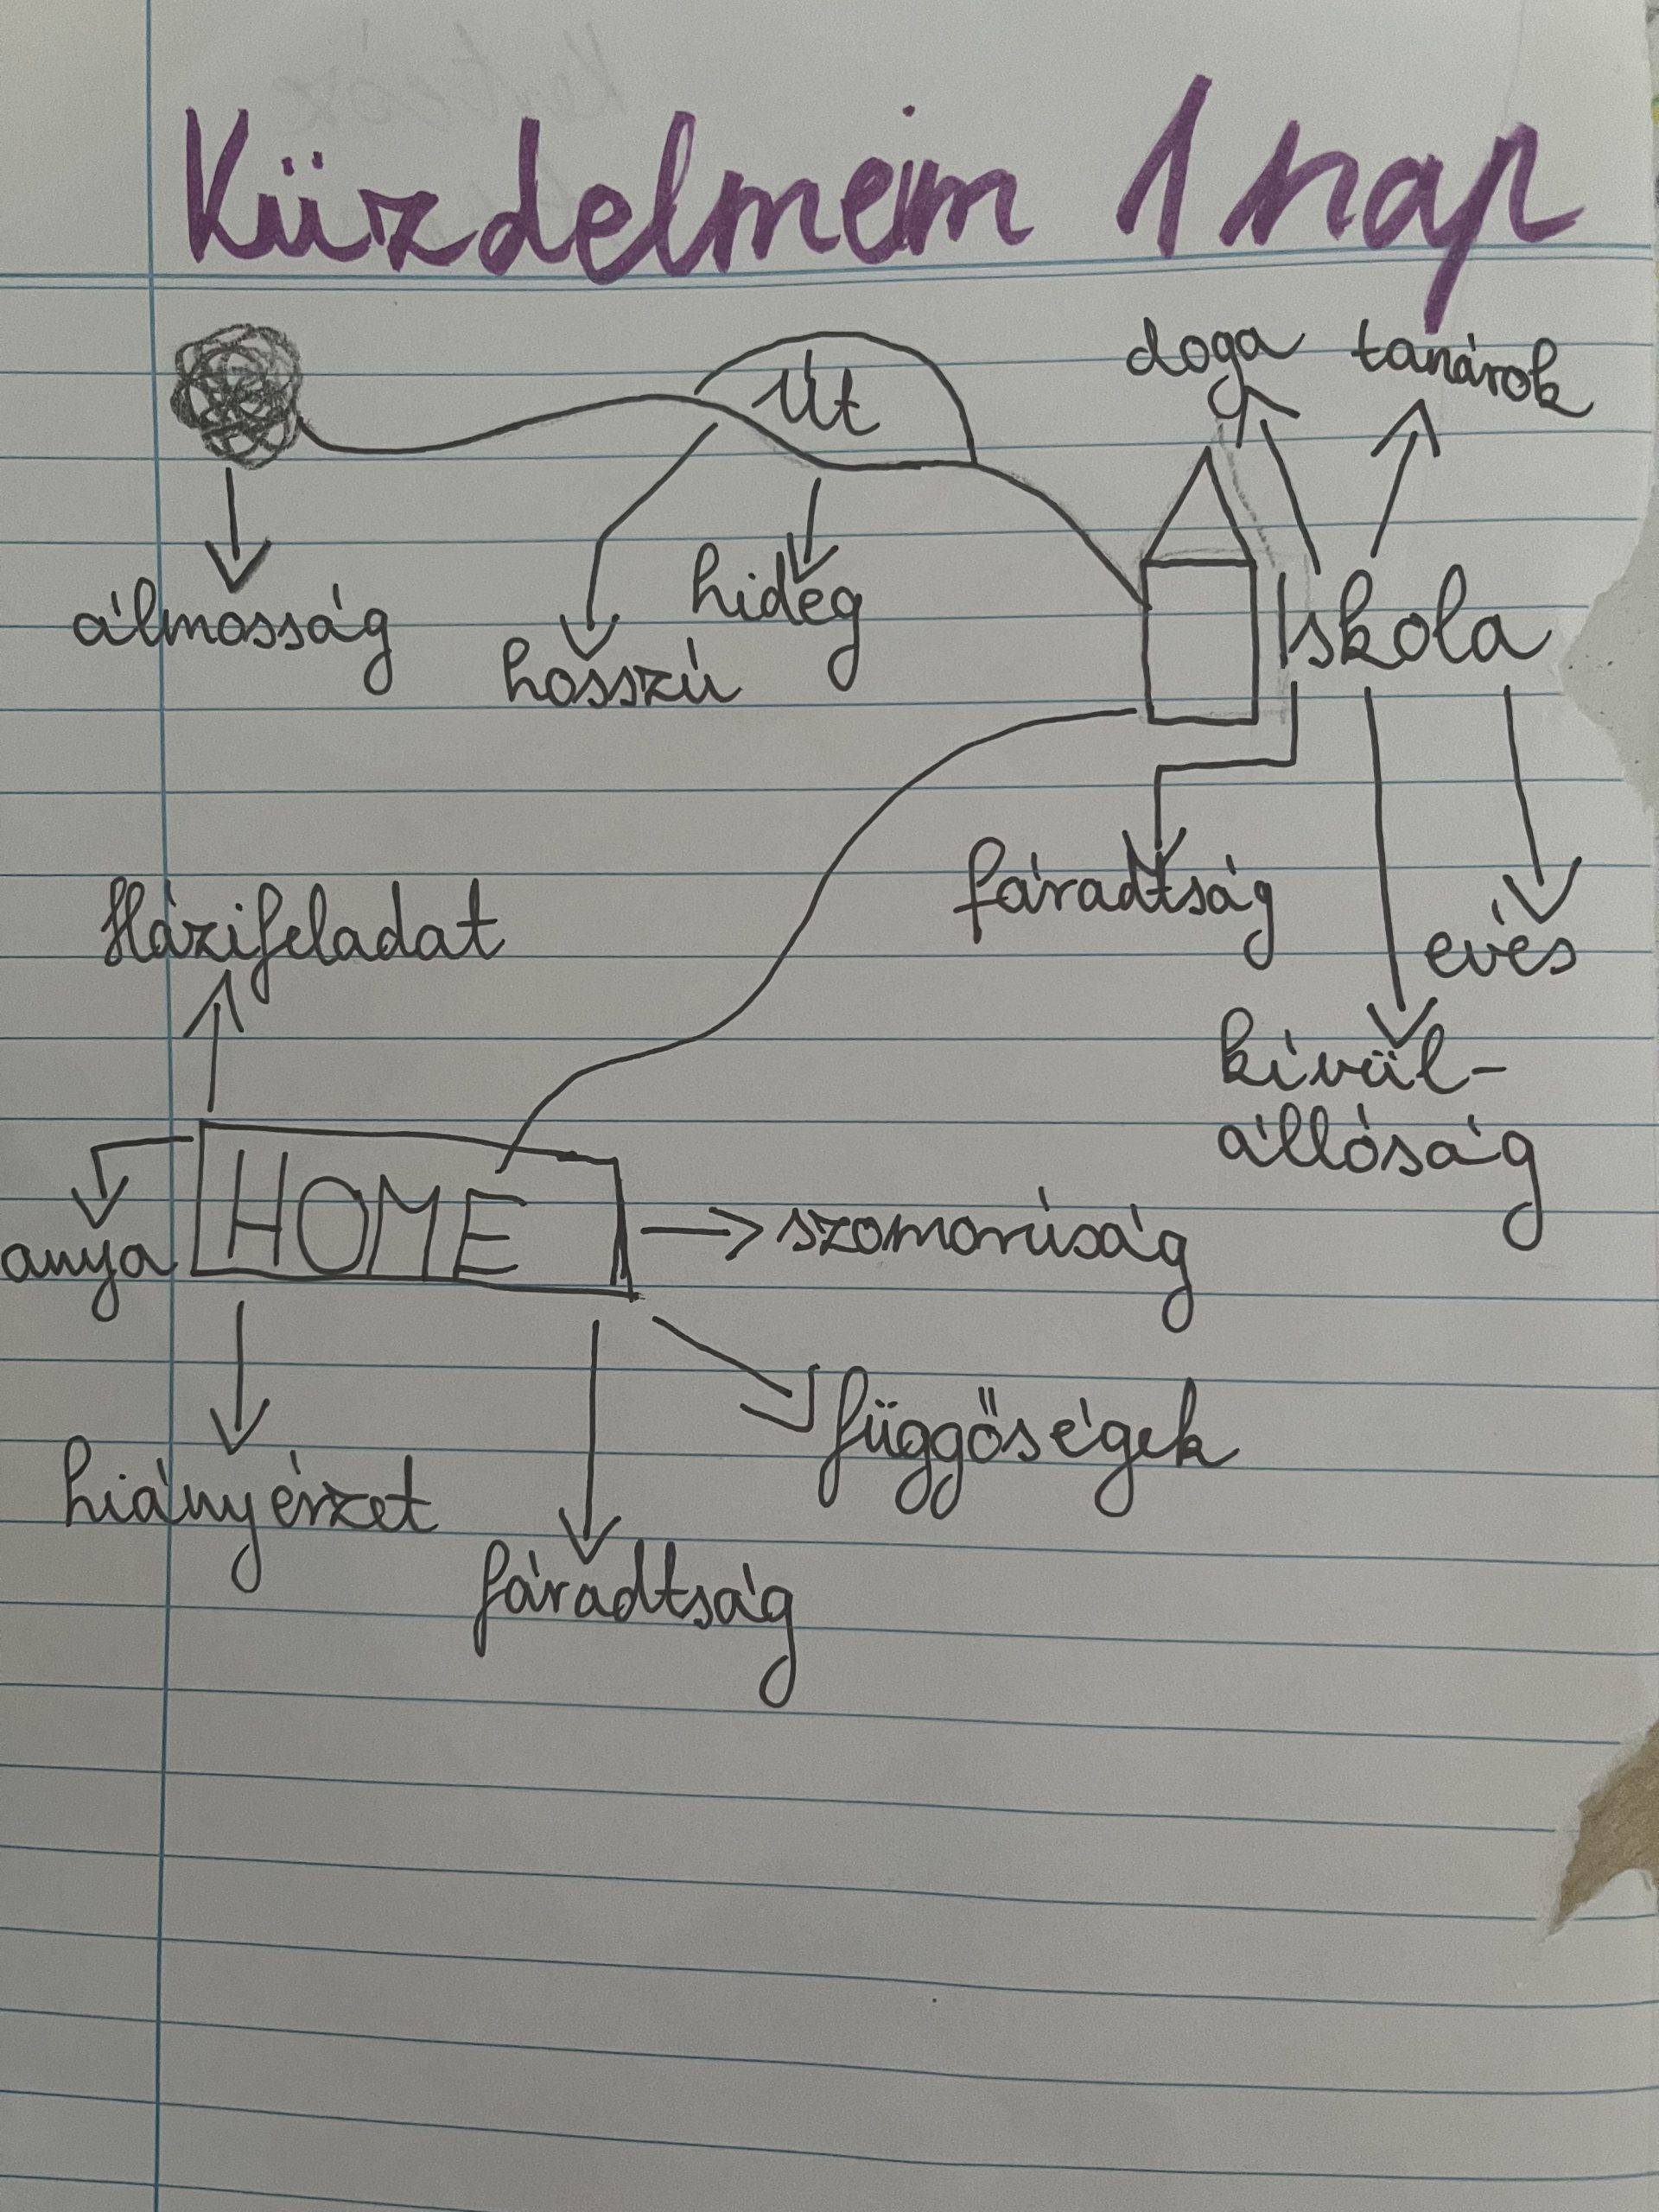 Küzdelmeim 1 nap
doga tanárok
Út
hideg
álmosság
hosszú
Iskola
fáradtság
eves
Házifeladat
kívül-
állóság
HOME
szomorúság
anya
függőségek
hiányérzet
fáradtság